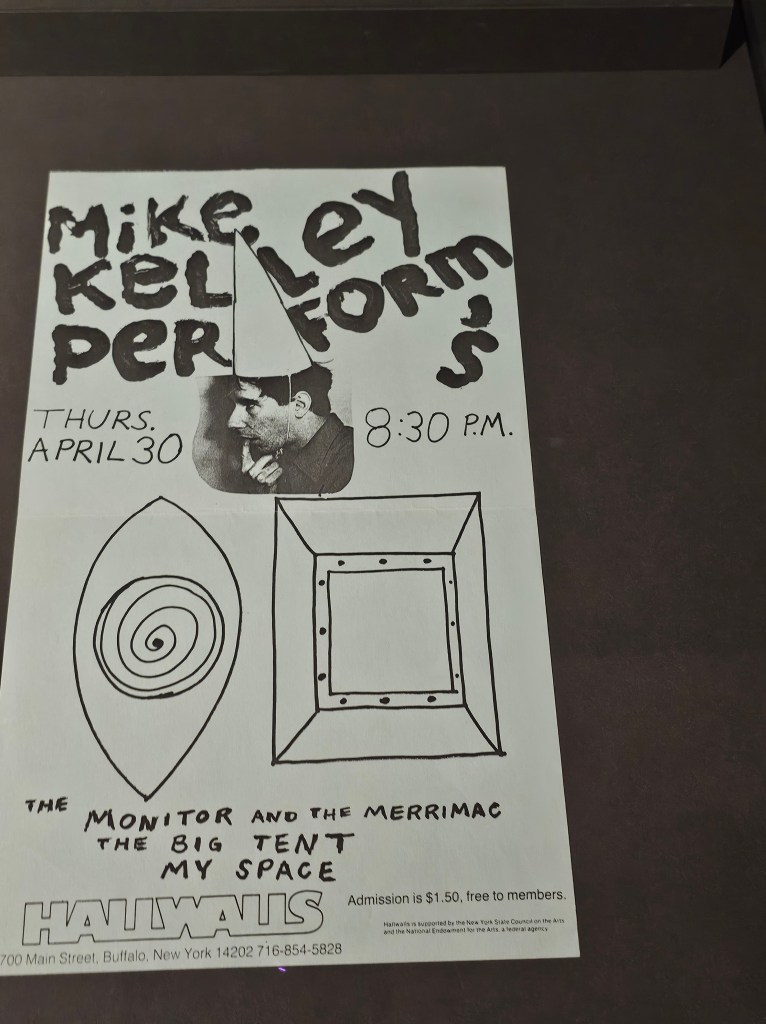 MiKe KelLey
PerFORm's
THURS.
APRIL 30
8:30 P.M.
THE MONITOR AND THE MERRIMAC
THE BIG TENT
MY SPACE
HALLWALLS
Admission is $1.50, free to members.
Hallwalls is supported by the New York State Council on the Arts
and the National Endowment for the Arts, a federal agency.
700 Main Street, Buffalo, New York 14202 716-854-5828